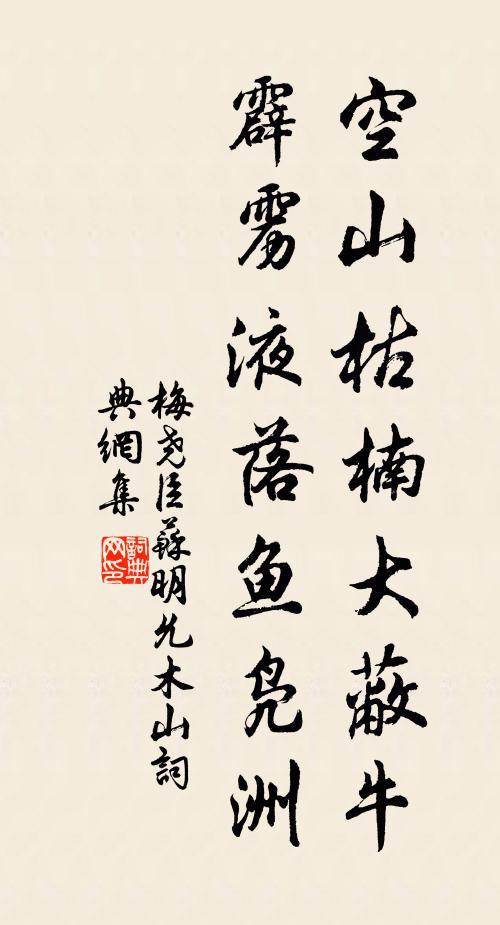 空山枯楠大蔽牛
霹雳液落鱼凫洲
梅尧臣蘇明允木山詞
典網集
詞典网印